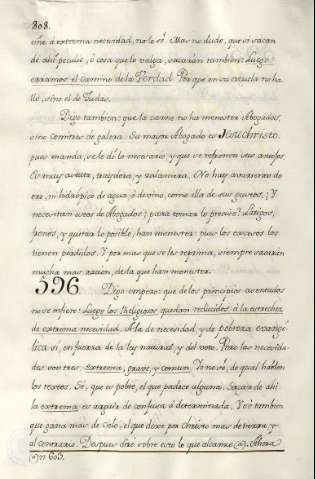 808.
una à extrema necesidad, no lo sé. Mas no dudo, que si sacan
de ahi peculio, ò cosa que lo valga, sacaràn tambien: Luego
erramos el camino de la Verdad. Por que en su escuela no ha-
llò, sino el de Judas.
Digo tambien: que la carne no ha menester Abogados,
sino comitres de galera. Su mayor Abogado es Jesu Christo:
pues manda, se le dè lo necesario, y que se refrenen sus antojos.
Es muy astuta, tragadora, y zalamera. No hay
ni hidropico de agua, ò de vino, como ella de sus gustos. ¿Y
necesitan estos de Abogados? para tomar lo preciso? Latigos,
frenos, y quitar lo posible, han menester: pues los excesos los
tienen perdidos. Y por mas que se les reprima, siempre sacaràn
mucha mas racion, de la que han menester.
596 Digo empero: que de los principios asentados
no se infiere: Luego los Religiosos quedan reducidos à la estrechez
de extrema necesidad. A la de necesidad, y de pobreza evange-
lica si, en fuerza de la ley natural, y del voto. Pero las necesida-
des son tres: extrema, grave, y comun. Yo no sé, de qual hablen
los textos. Sé, que es pobre, el que padece alguna. Sacar de ahi
la extrema es sacar de confuso à determinado. Y si tambien
que gana mas de Cielo, el que dexe por Christo mas de tierra, y
al contrario. Despues diré sobre esto lo que alcanze (a). Ahora
(a) n 603.